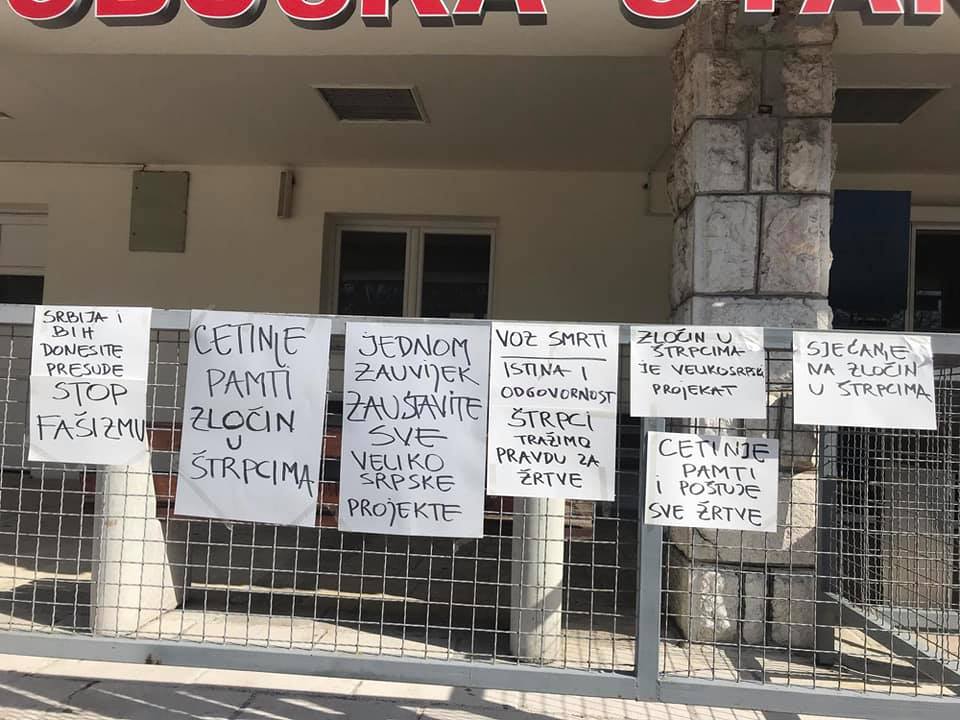 SRBIJA I
BIH
DONESITE
PRESUDE
STOP
FAŠIZMU
CETINJE
PAMTI
ZLOČIN
U
ŠTRPCIMA
JEDNOM
ZAUVIJEK
ZAUSTAVITE
SVE
VELIKO
SRPSKE
PROJEKTE
VOZ SMRTI
ISTINA I
ODGOVORNOST
ŠTRPCI
TRAŽIMO
PRAVDU ZA
ŽRTVE
ZLOČIN U
ŠTRPCIMA
JE VELIKOSRPSKI
PROJEKAT
CETINJE
PAMTI
I POŠTUJE
SVE ŽRTVE
SJEĆANJE
NA ZLOČIN
U ŠTRPCIMA